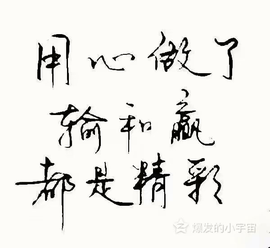 用心做了
输和赢
都是精彩
爆发的小宇宙